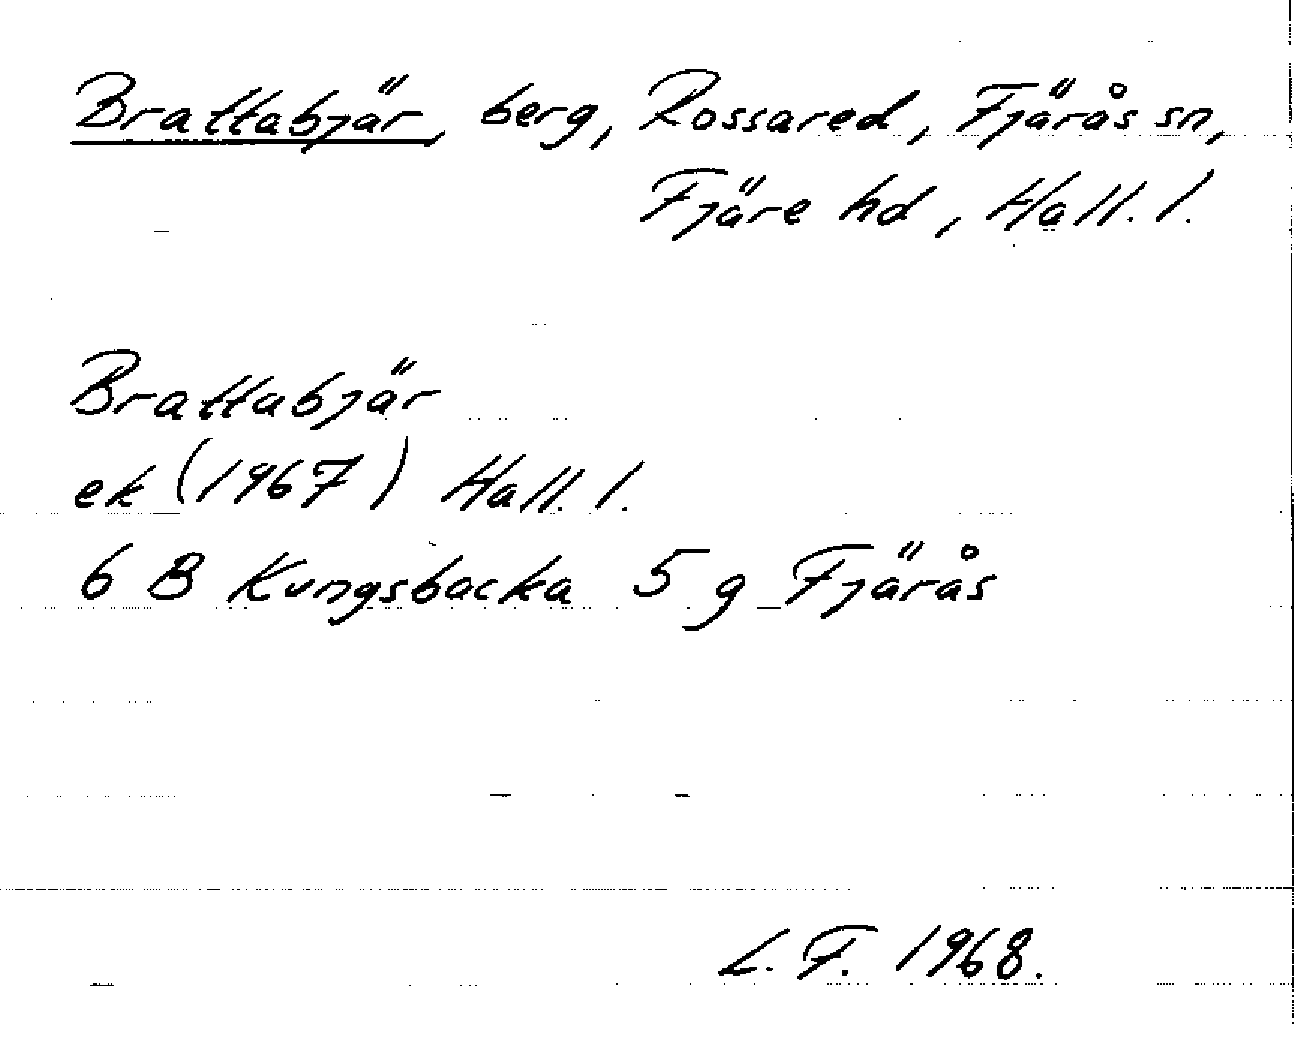 Brattabjär, berg, Rossared, Fjärås sn,
Fjäre hd, Hall. l.
Brattabjär
ek (1967) Hall. l.
6 B Kungsbacka 5 g Fjärås
L. F. 1968.